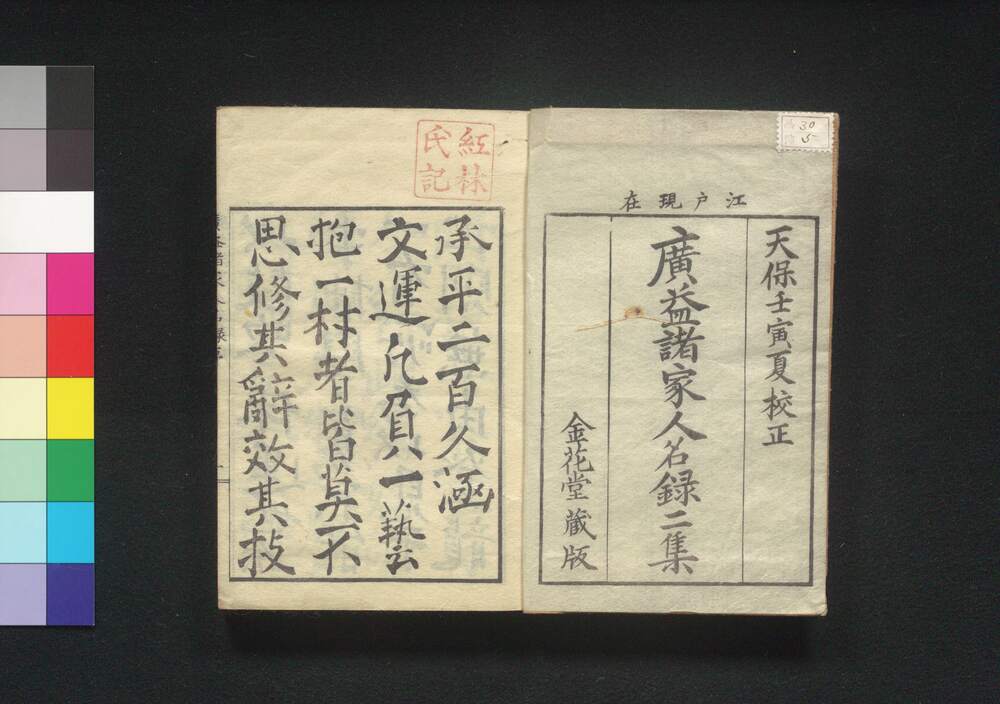 江戸現在
天保壬寅夏校正
廣益諸家人名録二集
金花堂蔵版
30
5
紅林
氏記
承平二百久涵
文運凡負一藝
抱一材者皆莫不
思修其辭效其技